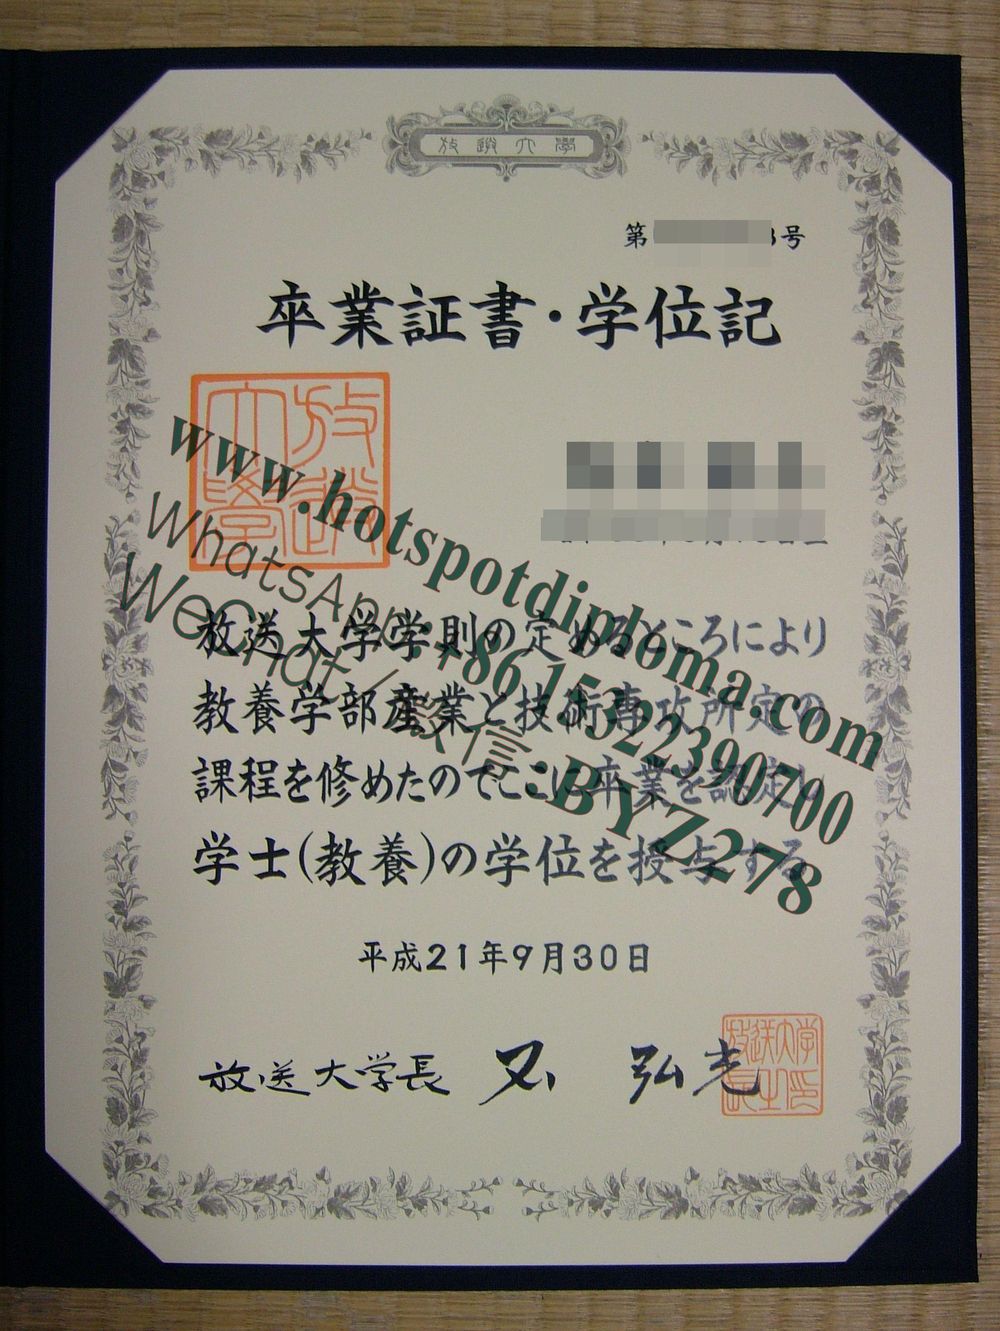 放送大學
第 号
卒業証書・学位記
放送大學
放送大学学則の定めるところにより
教養学部産業と技術専攻所定の
課程を修めたのでここに卒業を認定し
学士(教養)の学位を授与する
平成21年9月30日
放送大学長 弘光
放送大学長之印
www.hotspotdiploma.com
WhatsApp:+86 1522390700
WeChat/微信:BYZ278